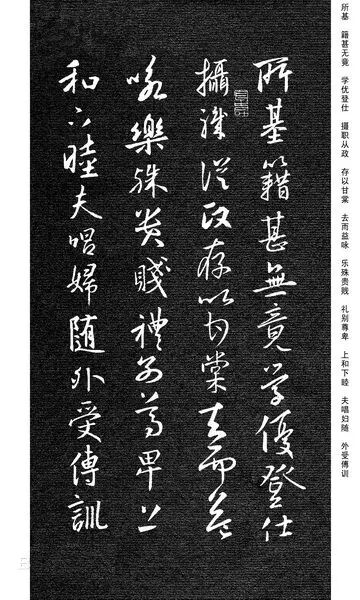 所基 籍甚无竟 学优登仕 摄职从政 存以甘棠 去而益咏 乐殊贵贱 礼别尊卑 上和下睦 夫唱妇随 外受傅训
所基籍甚無竟學優登仕
攝職從政存以甘棠去而益
咏樂殊貴賤禮別尊卑上
和下睦夫唱婦随外受傅訓